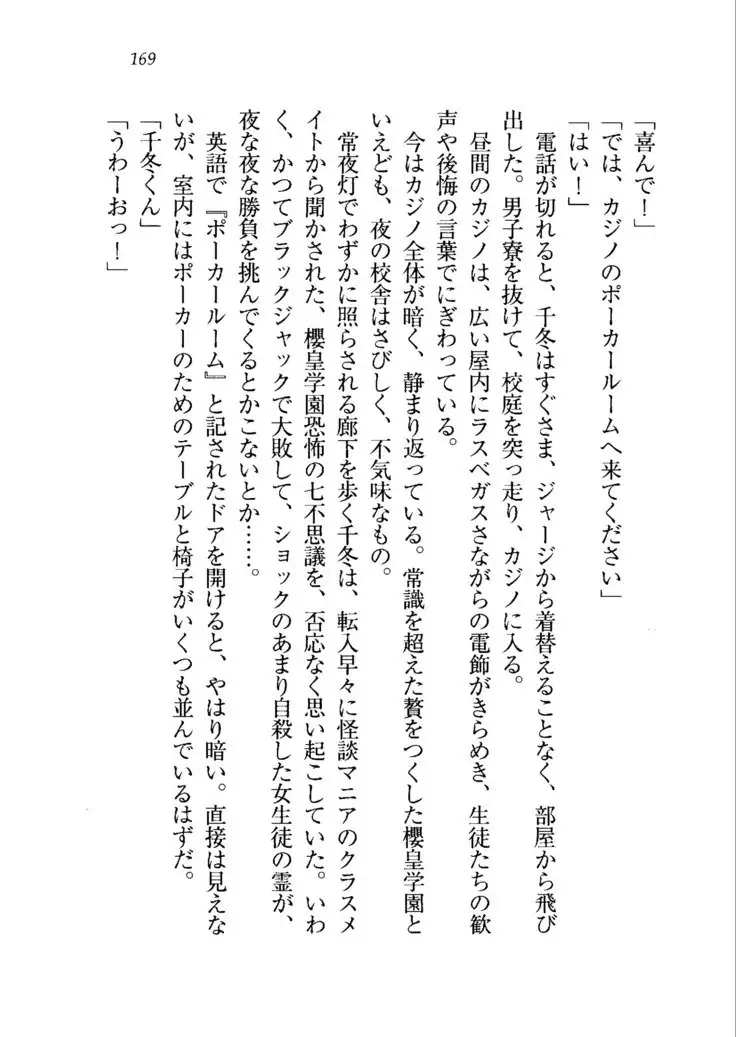 169
「喜んで！」
「では、カジノのポーカールームへ来てください」
「はい！」
電話が切れると、千冬はすぐさま、ジャージから着替えることなく、部屋から飛び
出した。男子寮を抜けて、校庭を突っ走り、カジノに入る。
昼間のカジノは、広い屋内にラスベガスさながらの電飾がきらめき、生徒たちの歓
声や後悔の言葉でにぎわっている。
今はカジノ全体が暗く、静まり返っている。常識を超えた贅をつくした櫻皇学園と
いえども、夜の校舎はさびしく、不気味なもの。
常夜灯でわずかに照らされる廊下を歩く千冬は、転入早々に怪談マニアのクラスメ
イトから聞かされた、櫻皇学園恐怖の七不思議を、否応なく思い起こしていた。いわ
く、かつてブラックジャックで大敗して、ショックのあまり自殺した女生徒の霊が、
夜な夜な勝負を挑んでくるとかこないとか……。
英語で『ポーカールーム』と記されたドアを開けると、やはり暗い。直接は見えな
いが、室内にはポーカーのためのテーブルと椅子がいくつも並んでいるはずだ。
「千冬くん」
「うわーおっ！」